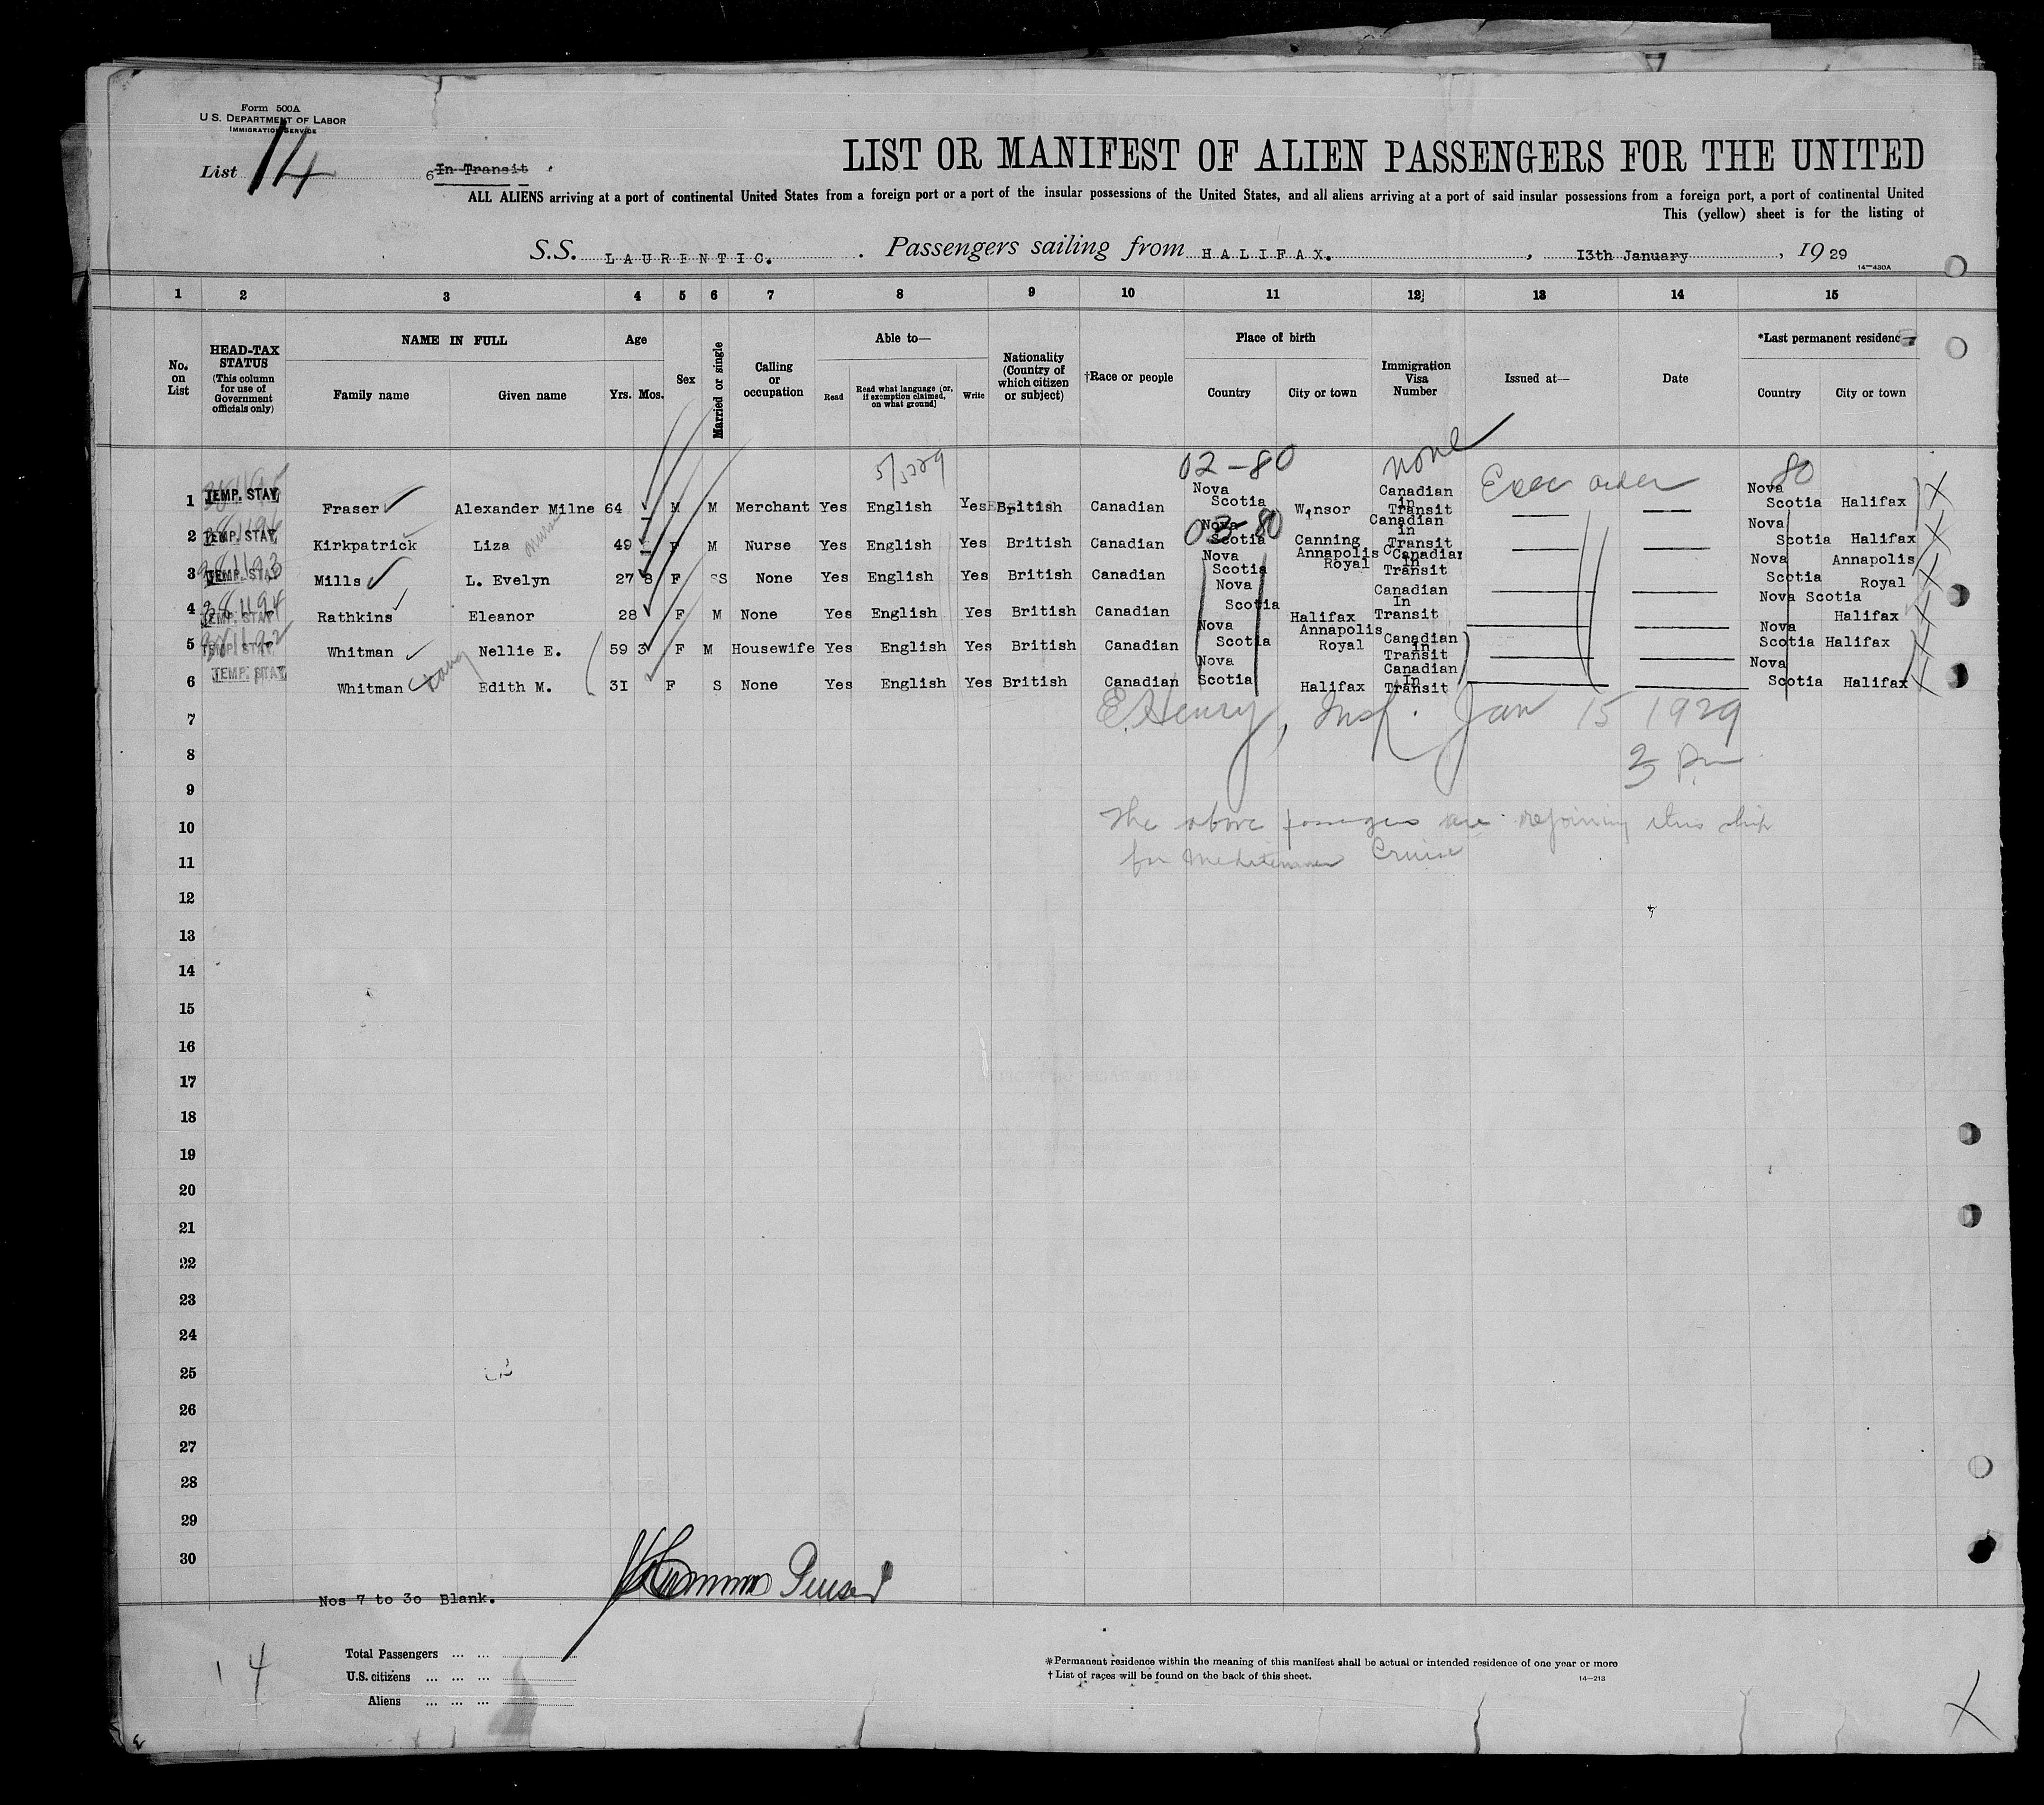 Form 500A
U. S. DEPARTMENT OF LABOR
IMMIGRATION SERVICE
List 14
6 In Transit
LIST OR MANIFEST OF ALIEN PASSENGERS FOR THE UNITED
ALL ALIENS arriving at a port of continental United States from a foreign port or a port of the insular possessions of the United States, and all aliens arriving at a port of said insular possessions from a foreign port, a port of continental United
This (yellow) sheet is for the listing of
S.S. LAURENTIC. Passengers sailing from HALIFAX. , 13th January , 19 29
14—430A
1 2 3 4 5 6 7 8 9 10 11 12 13 14 15
No. on List
HEAD-TAX STATUS (This column for use of Government officials only)
NAME IN FULL
Family name Given name
Age
Yrs. Mos.
Sex
Married or single
Calling or occupation
Able to—
Read Read what language (or, if exemption claimed, on what ground) Write
Nationality (Country of which citizen or subject)
†Race or people
Place of birth
Country City or town
Immigration Visa Number
Issued at—
Date
*Last permanent residence
Country City or town
02-80 none Exec order 80
1 TEMP. STAY Fraser Alexander Milne 64 M M Merchant Yes English Yes British Canadian Nova Scotia Winsor Canadian in Transit Nova Scotia Halifax
2 TEMP. STAY Kirkpatrick Liza nurse 49 F M Nurse Yes English Yes British Canadian Nova Scotia Canning Canadian in Transit Nova Scotia Halifax
3 TEMP. STAY Mills L. Evelyn 27 8 F S None Yes English Yes British Canadian Nova Scotia Annapolis Royal Canadian In Transit Nova Scotia Annapolis Royal
4 TEMP. STAY Rathkins Eleanor 28 F M None Yes English Yes British Canadian Nova Scotia Halifax Canadian In Transit Nova Scotia Halifax
5 TEMP. STAY Whitman Nellie E. 59 3 F M Housewife Yes English Yes British Canadian Nova Scotia Annapolis Royal Canadian in Transit Nova Scotia Halifax
6 TEMP. STAY Whitman Edith M. 31 F S None Yes English Yes British Canadian Nova Scotia Halifax Canadian In Transit Nova Scotia Halifax
7 E. Henry, Insp. Jan 15 1929
8 3 Pm
9
10 The above passengers are rejoining this ship
11 for Mediterranean Cruise
12
13
14
15
16
17
18
19
20
21
22
23
24
25
26
27
28
29
30
Purser
Nos 7 to 30 Blank.
Total Passengers ... ...
U.S. citizens ... ... ...
Aliens ... ... ...
14
*Permanent residence within the meaning of this manifest shall be actual or intended residence of one year or more
† List of races will be found on the back of this sheet.
14—213